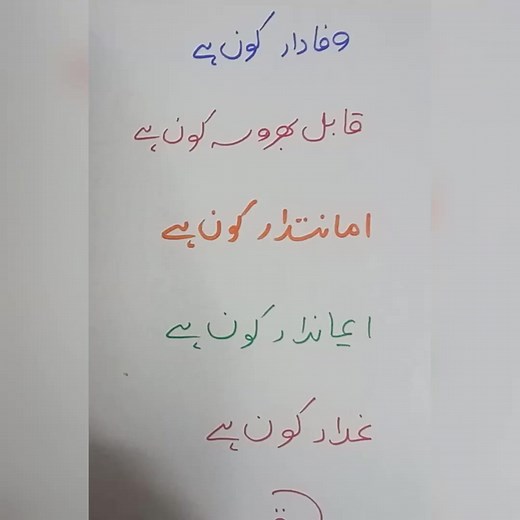 وفادار کون ہے
قابل بھروسہ کون ہے
امانتدار کون ہے
ایماندار کون ہے
غدار کون ہے